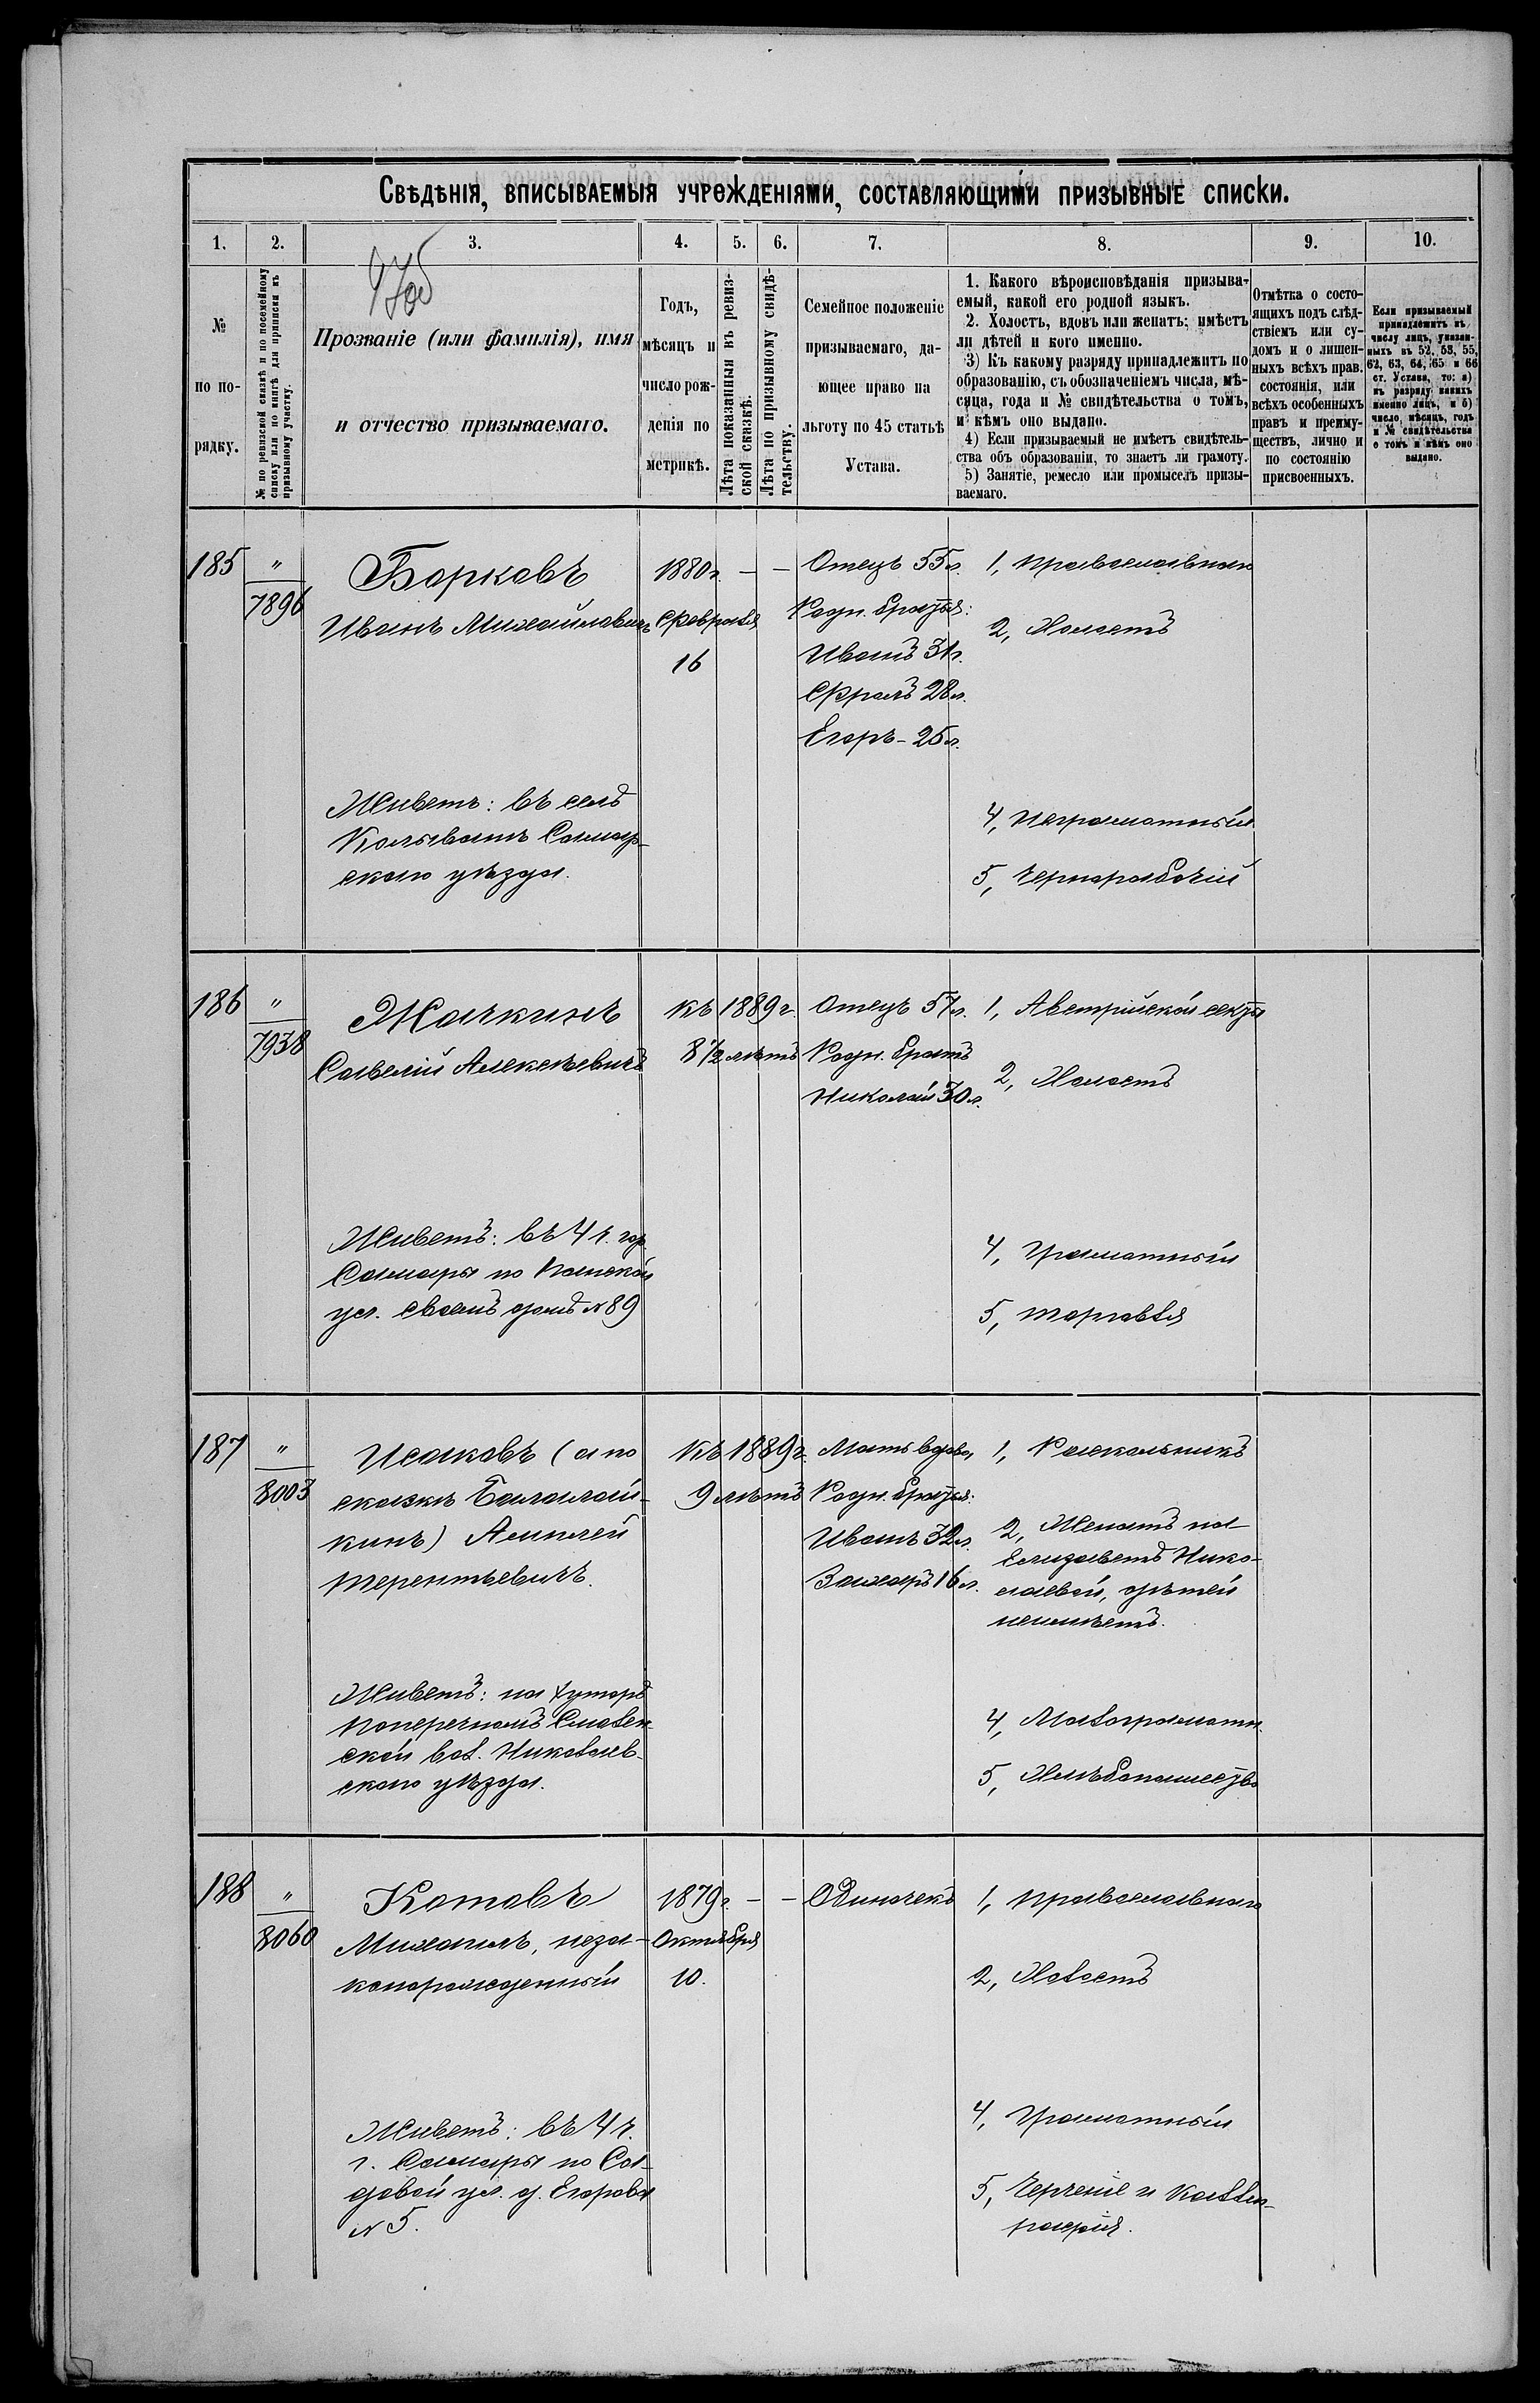 Свѣдѣнія, вписываемыя учрежденіями, составляющими призывные списки.
1. 2. 3. 4. 5. 6. 7. 8. 9. 10.
№
по по-
рядку.
№ по ревизской сказкѣ и по посемейному
списку или по книгѣ для приписки къ
призывному участку.
Прозваніе (или фамилія), имя
и отчество призываемаго.
Годъ,
мѣсяцъ и
число рож-
денія по
метрикѣ.
Лѣта показанныя въ ревиз-
ской сказкѣ.
Лѣта по призывному свидѣ-
тельству.
Семейное положеніе
призываемаго, да-
ющее право на
льготу по 45 статьѣ
Устава.
1. Какого вѣроисповѣданія призыва-
емый, какой его родной языкъ.
2. Холостъ, вдовъ или женатъ; имѣетъ
ли дѣтей и кого именно.
3) Къ какому разряду принадлежитъ по
образованію, съ обозначеніемъ числа, мѣ-
сяца, года и № свидѣтельства о томъ,
и кѣмъ оно выдано.
4) Если призываемый не имѣетъ свидѣтель-
ства объ образованіи, то знаетъ ли грамоту.
5) Занятіе, ремесло или промыселъ призы-
ваемаго.
Отмѣтка о состо-
ящихъ подъ слѣд-
ствіемъ или су-
домъ и о лишен-
ныхъ всѣхъ прав.
состоянія, или
всѣхъ особенныхъ
правъ и преиму-
ществъ, лично и
по состоянію
присвоенныхъ.
Если призываемый
принадлежитъ къ
числу лицъ, указан-
ныхъ въ 52, 53, 55,
62, 63, 64, 65 и 66
ст. Устава, то: а)
къ разряду какихъ
именно лицъ, и б)
число, мѣсяцъ, годъ
и № свидѣтельства
о томъ и кѣмъ оно
выдано.
185
"
7896
Борковъ
Иванъ Михайловичъ
Живетъ: въ селѣ
Колывани Самар-
скаго уѣзда.
1880 г.
Февраля
16
—
—
Отецъ 55 л.
Родн. братья:
Иванъ 31 г.
Фролъ 28 л.
Егоръ - 25 л.
1, Православнаго
2, Холостъ
4, Неграмотный
5, Чернорабочій
186
"
7938
Жачкинъ
Савелій Алексѣевичъ
Живетъ: въ 4 ч. гор.
Самары по
ул. своемъ домѣ № 89
къ 1889 г.
8 1/2 лѣтъ
Отецъ 57 л.
Родн. братъ
Николай 30 л.
1, Австрійской секты
2, Холостъ
4, Грамотный
5, Торговля
187
"
8003
Исаковъ (а по
сказкѣ Балалай-
кинъ)
Терентьевичъ.
Живетъ: на хуторѣ
Поперечномъ
ской вол. Николаев-
скаго уѣзда.
Къ 1889 г.
9 лѣтъ
Мать вдова,
Родн. братья:
Иванъ 32 л.
Захаръ 16 л.
1, Раскольникъ
2, Женатъ на
Елизаветѣ Нико-
лаевой, дѣтей
неимѣетъ.
4, Малограмотн.
5, Хлѣбопашество
188
"
8060
Котовъ
Михаилъ, неза-
конорожденный
Живетъ: въ 4 ч.
г. Самары по Са-
довой ул. д. Егорова
№ 5.
1879 г.
Октября
10.
—
—
Одиночекъ
1, Православнаго
2, Холостъ
4, Грамотный
5, Черченіе и Калли-
графія.